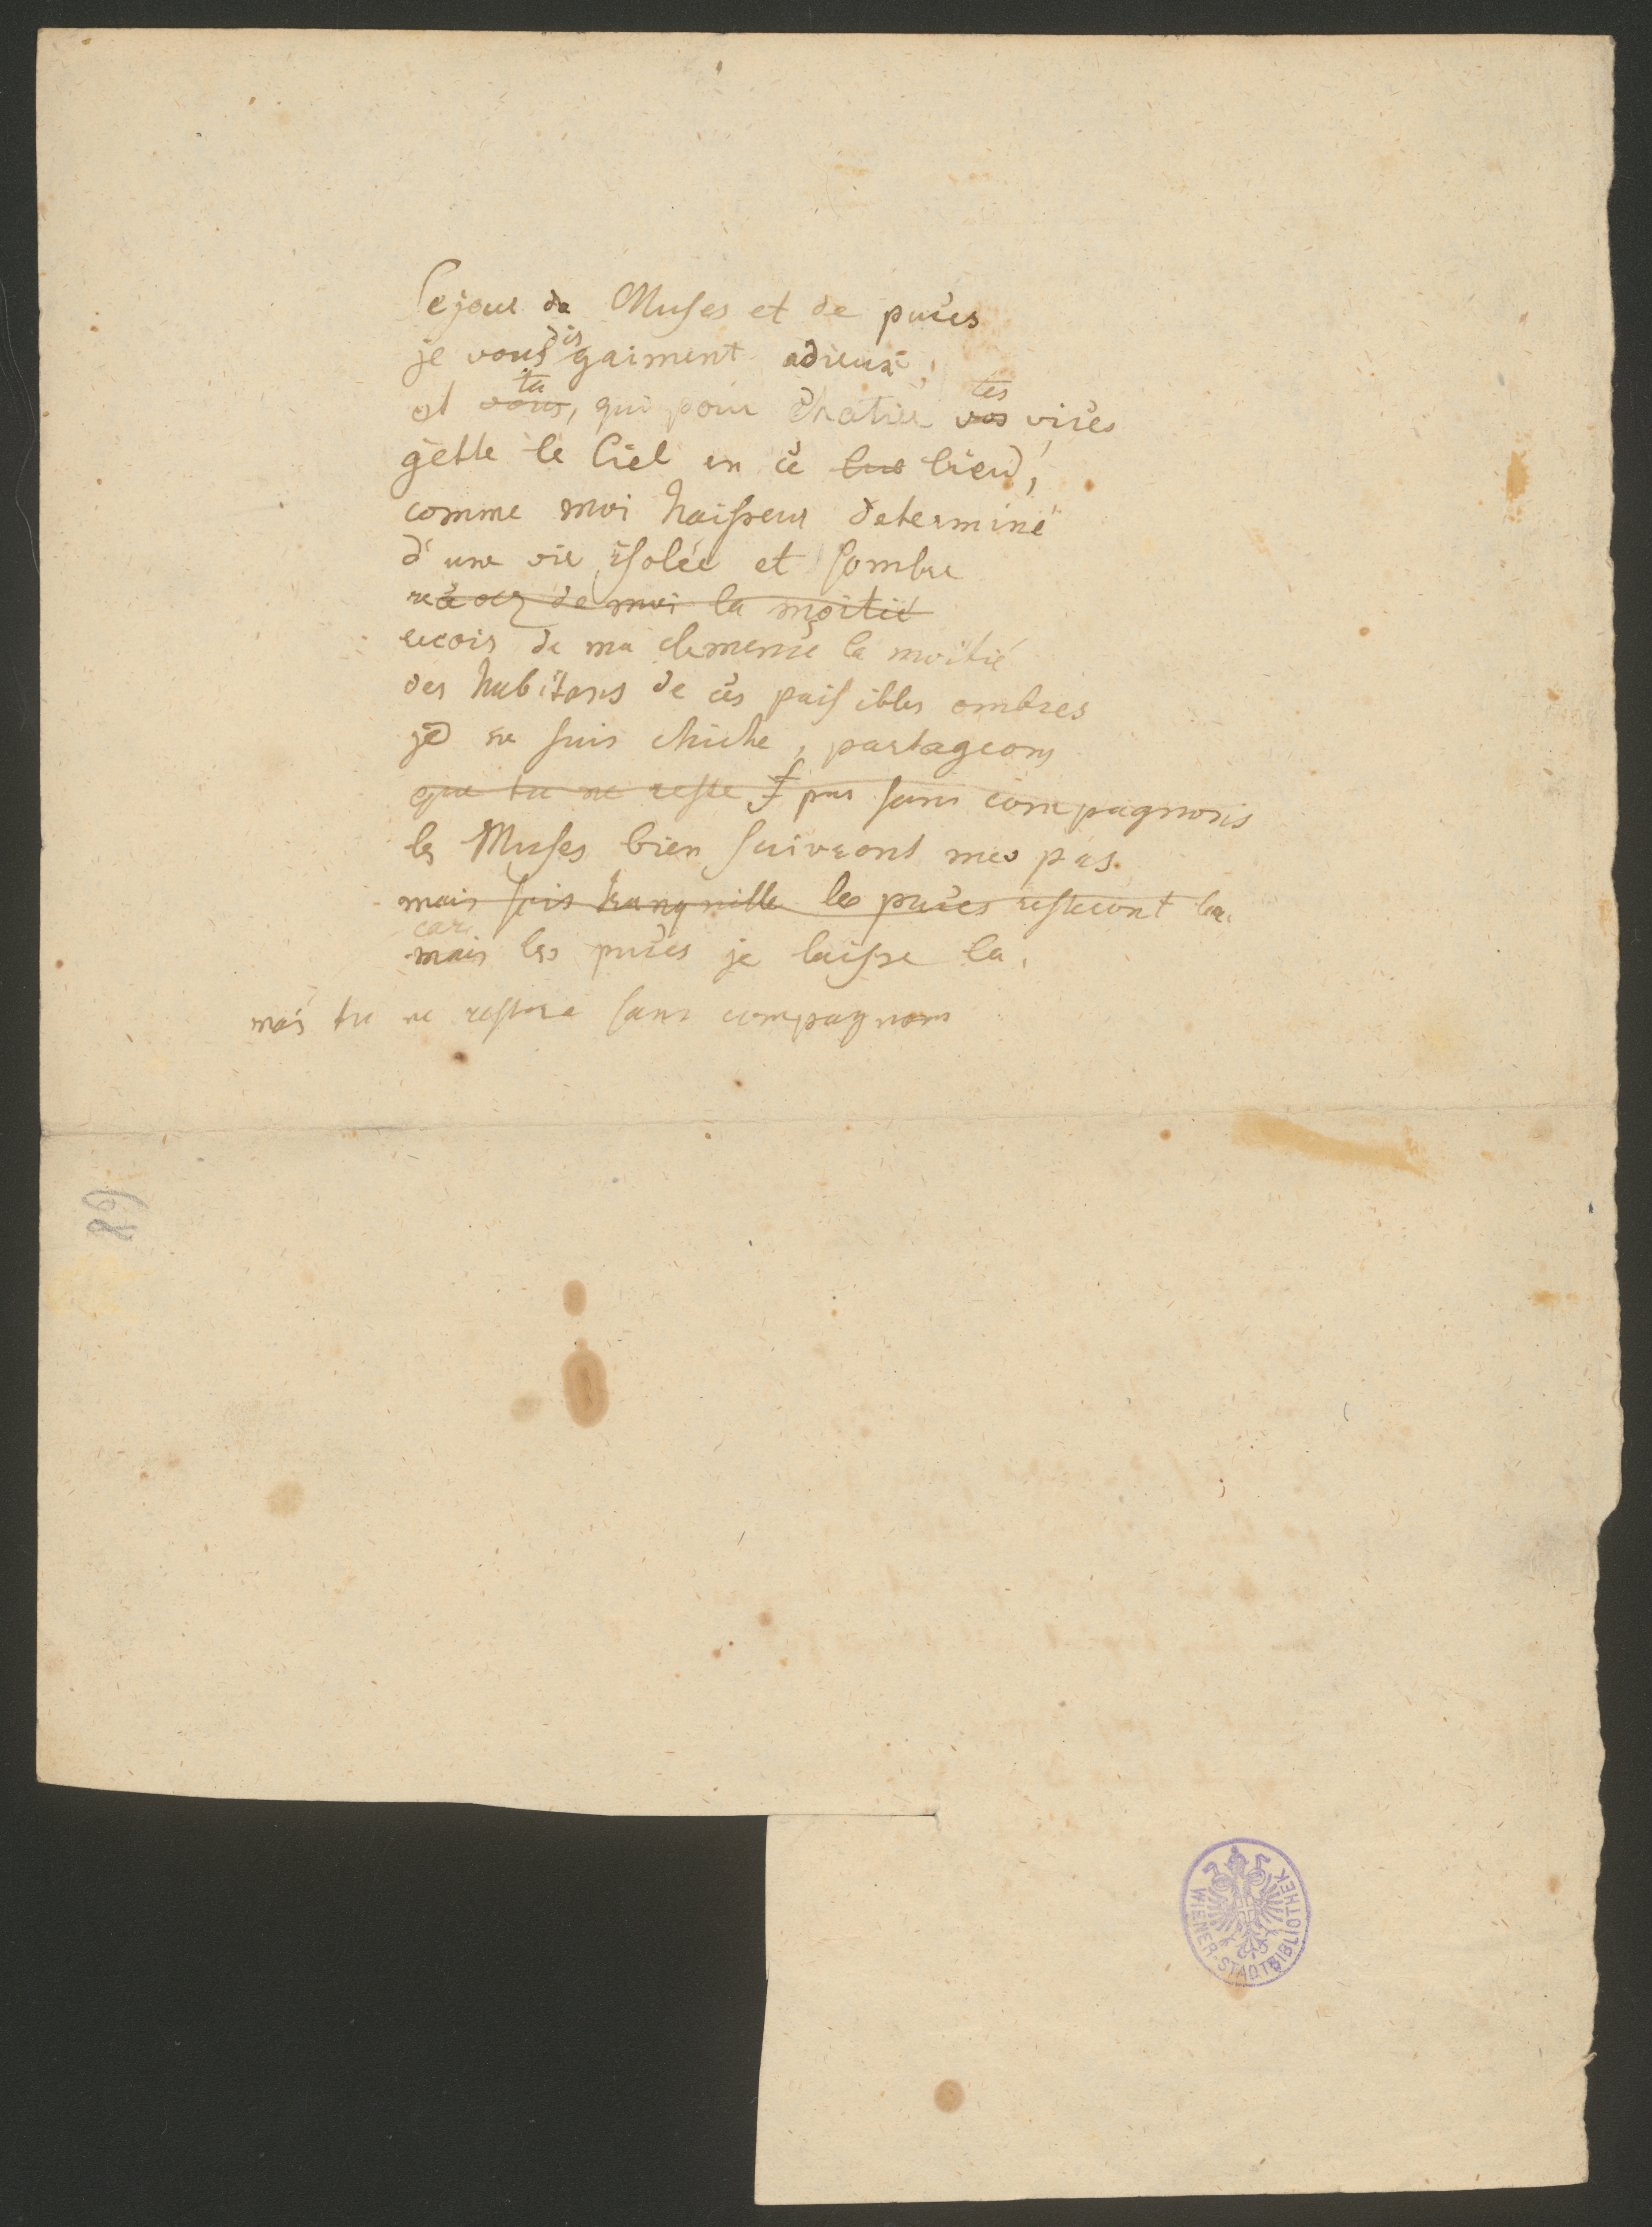 Sejour de Muses et de puces
je vous dis gaiment adieux,
et vous, tu qui pour chatier vos tes vices
gette le Ciel en ce lieu,
comme moi haisseur determiné
d'une vie isolée et sombre
de moi la moitié
recois de ma clemence la moitié
des habitans de ces paisibles ombres
je ne suis chiche, partageons
que tu ne reste pas sans compagnons
les Muses bien suivront mes pas.
mais sois tranquille les puces resteront la.
car
mais les puces je laisse la.
mais tu ne restera sans compagnons
89
WIENER-STADTBIBLIOTHEK